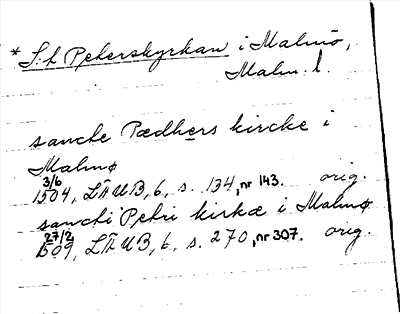 * S:t Peterskyrkan i Malmö,
Malm. l.
sancte Pædhers kircke i
Malmø
3/6 1504, LÄUB, 6, s. 134, nr 143. orig.
sancti Petri kirkæ i Malmø
27/2 1509, LÄUB, 6, s. 270, nr 307. orig.